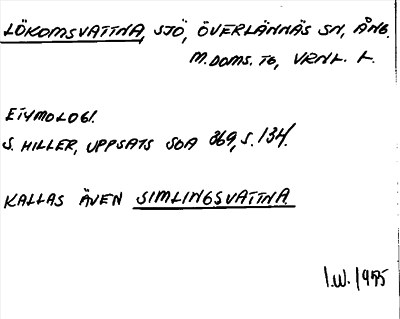 LÖKOMSVATTNA, SJÖ, ÖVERLÄNNÄS SN, ÅNG.
M. DOMS. TG, VRNL. L.
ETYMOLOGI.
S. HILLER, UPPSATS SOA 369, S. 134.
KALLAS ÄVEN SIMLINGSVATTNA
I.W. 1955